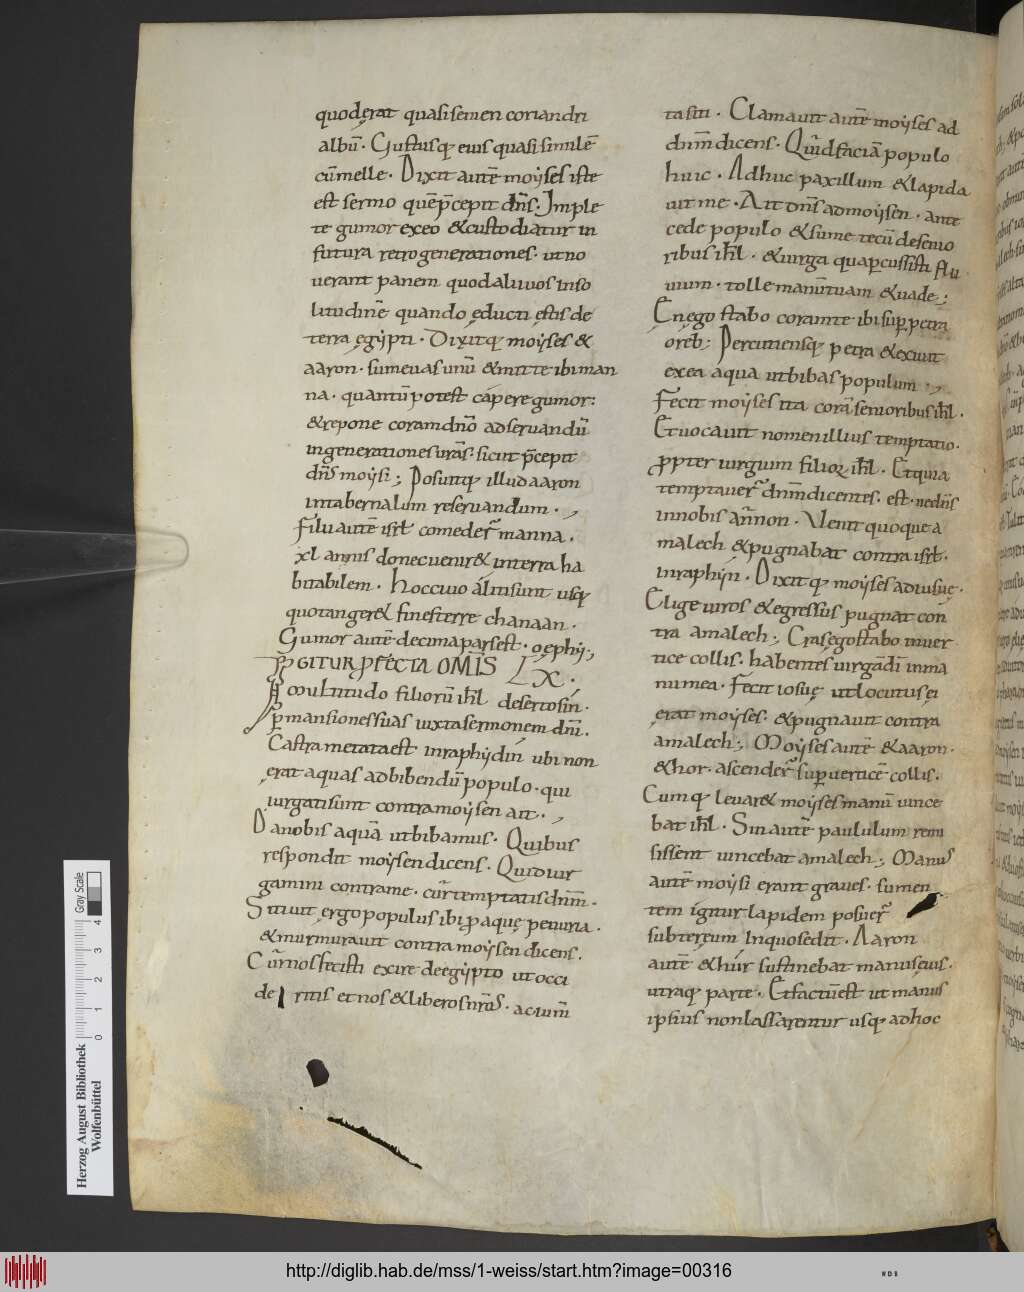 quod erat quasi semen coriandri
albū. Gustusq; eius quasi similē
cū melle. Dixit autē moẏses iste
est sermo quē p̄cepit dn̄s. Imple
te gumor ex eo & custodiatur in
futura retro generationes. ut no
uerant panem quo dalui uos in so
litudinē quando ęducti ęstis de
terra ęgẏpti. Dixitq; moẏses &
aaron. sume uas unū & mitte ibi man
na. quantū potest capere gumor:
& repone coram dn̄o ad seruandū
in generationes ur̄as. sicut p̄cepit
dn̄s moẏsi; Posuitq; illud aaron
in tabernalum reseruandum.,
Filii autē isrl̄ comeder̄ manna.
xl annis donec uenir& in terra ha
bitabilem. hoc cibo aliti sunt usq;
quo tanger& fines terre chanaan.
Gumor autē decima pars est. oephi;,
IGITUR PFECTA OMIS LX.
Multitudo filiorū ihl̄ deserto sin.
p mansiones suas iuxta sermonem dn̄i.
Castra metata est in raphẏdin ubi non
erat aquas ad bibendū populo. qui
iurgati sunt contra moẏsen ait.,
Da nobis aquā ut bibamus. Quibus
respondit moẏsen dicens. Quid iur
gamini contra me. cūr temptatis dnm̄.
Sitiuit ergo populus ibi p aquę penuria.
& murmurauit contra moẏsen dicens.
Cūr nos fecisti exire de egẏpto ut occi
deritis et nos & liberos nr̄os. ac ium̄
ta siti. Clamauit autē moẏses ad
dnm̄ dicens. Quid faciā populo
huic. Adhuc paxillum & lapida
uit me. Ait dn̄s ad moẏsen. ante
cede populo & sume tecū de senio
ribus ihl̄. & uirga qua pcussisti flu
uium. tolle manū tuam & uade;
En ego stabo coram te ibi sup petra
oreb; Percutiensq; petra & exiuit
ex ea aqua ut bibas populum.,
Fecit moẏses ita corā senioribus ihl̄.
Et uocauit nomen illius temptatio.
ppter iurgium filioꝝ ihl̄. Et quia
temptauer̄ dnm̄ dicentes. est ne dn̄s
in nobis an non. Uenit quoque a
malech & pugnabat contra isrl̄.
in raphẏn. Dixitq; moẏses ad iusuę.
Elige uiros & egressus pugnat con
tra amalech;, Cras ego stabo in uer
tice collis. habentes uirgā dī in ma
nu mea. Fecit iosuę ut locutus ei
erat moẏses. & pugnauit contra
amalech;, Moẏses autē & aaron.
& hor. ascender̄ sup uerticē collis.
Cumq; leuar& moẏses manū uince
bat ihl̄. Sin autē paululum remi
sissent uincebat amalech;, Manus
autē moẏsi erant graues. sumen
tem igitur lapidem posuer̄
subter eum in quo sedit. Aaron
autē & hur sustinebat manus eius.
utraq; parte. Et factū est ut manus
ipsius non lassarentur usq; ad hoc
Herzog August Bibliothek
Wolfenbüttel
Gray Scale
0 1 2 3 4
http://diglib.hab.de/mss/1-weiss/start.htm?image=00316